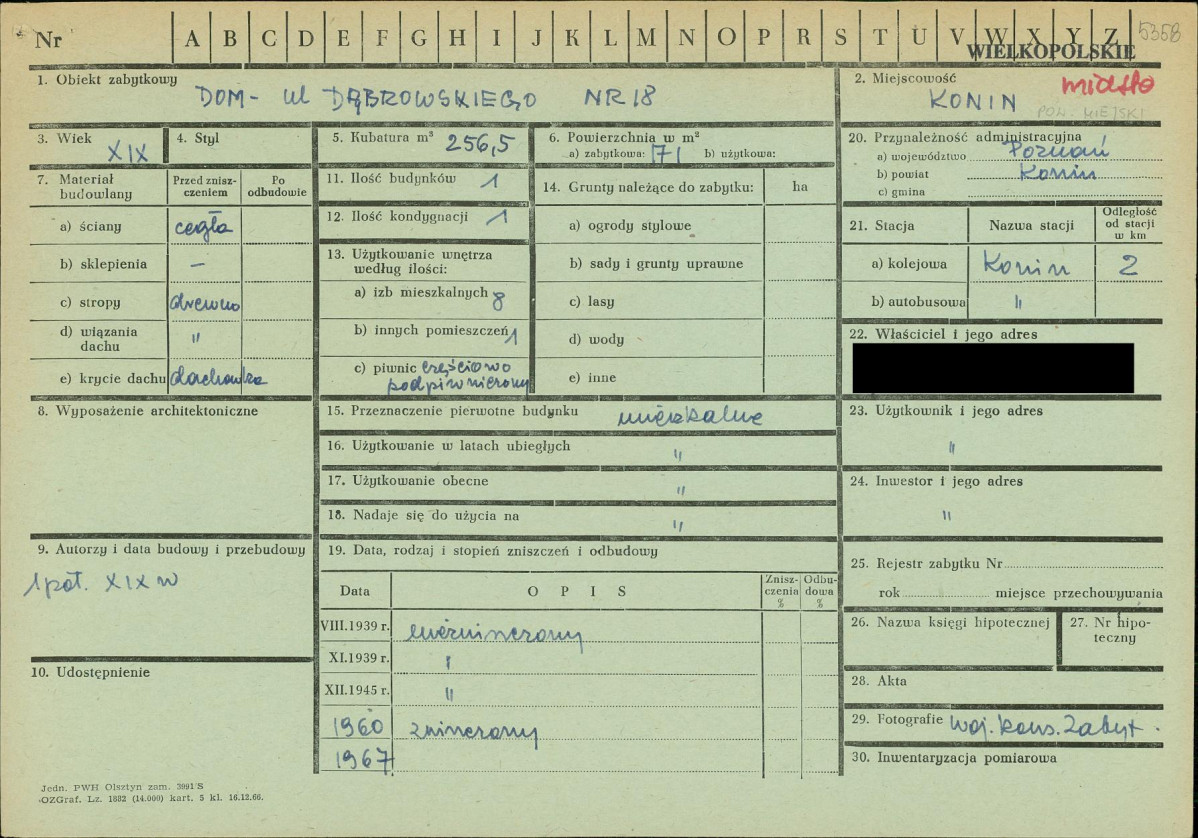 Nr A B C D E F G H I J K L M N O P R S T U V W X Y Z 5358
WIELKOPOLSKIE
1. Obiekt zabytkowy
DOM - ul DĄBROWSKIEGO NR 18
2. Miejscowość
KONIN miasto
POW. MIEJSKI
3. Wiek
XIX
4. Styl
5. Kubatura m³ 256,5
6. Powierzchnia w m²
a) zabytkowa: 171 b) użytkowa:
7. Materiał budowlany
Przed zniszczeniem
Po odbudowie
a) ściany cegła
b) sklepienia —
c) stropy drewno
d) wiązania dachu "
e) krycie dachu dachówka
8. Wyposażenie architektoniczne
9. Autorzy i data budowy i przebudowy
1 poł. XIX w
10. Udostępnienie
11. Ilość budynków 1
12. Ilość kondygnacji 1
13. Użytkowanie wnętrza
według ilości:
a) izb mieszkalnych 8
b) innych pomieszczeń 1
c) piwnic częściowo
podpiwniczony
14. Grunty należące do zabytku: ha
a) ogrody stylowe
b) sady i grunty uprawne
c) lasy
d) wody
e) inne
15. Przeznaczenie pierwotne budynku mieszkalne
16. Użytkowanie w latach ubiegłych "
17. Użytkowanie obecne "
18. Nadaje się do użycia na "
19. Data, rodzaj i stopień zniszczeń i odbudowy
Data OPIS Zniszczenia % Odbudowa %
VIII.1939 r. niezniszczony
XI.1939 r. "
XII.1945 r. "
1960 zniszczony
1967
20. Przynależność administracyjna
a) województwo Poznań
b) powiat Konin
c) gmina
21. Stacja Nazwa stacji Odległość od stacji w km
a) kolejowa Konin 2
b) autobusowa "
22. Właściciel i jego adres
23. Użytkownik i jego adres
"
24. Inwestor i jego adres
"
25. Rejestr zabytku Nr
rok miejsce przechowywania
26. Nazwa księgi hipotecznej
27. Nr hipoteczny
28. Akta
29. Fotografie Woj. Kons. Zabyt.
30. Inwentaryzacja pomiarowa
Jedn. PWH Olsztyn zam. 3991 S
OZGraf. Lz. 1882 (14.000) kart. 5 kl. 16.12.66.